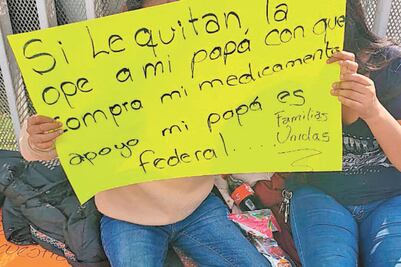 Si Le quitan la
ope a mi papá con que
compra mi medicamento
apoyo mi papá es
federal....
Familias
Unidas